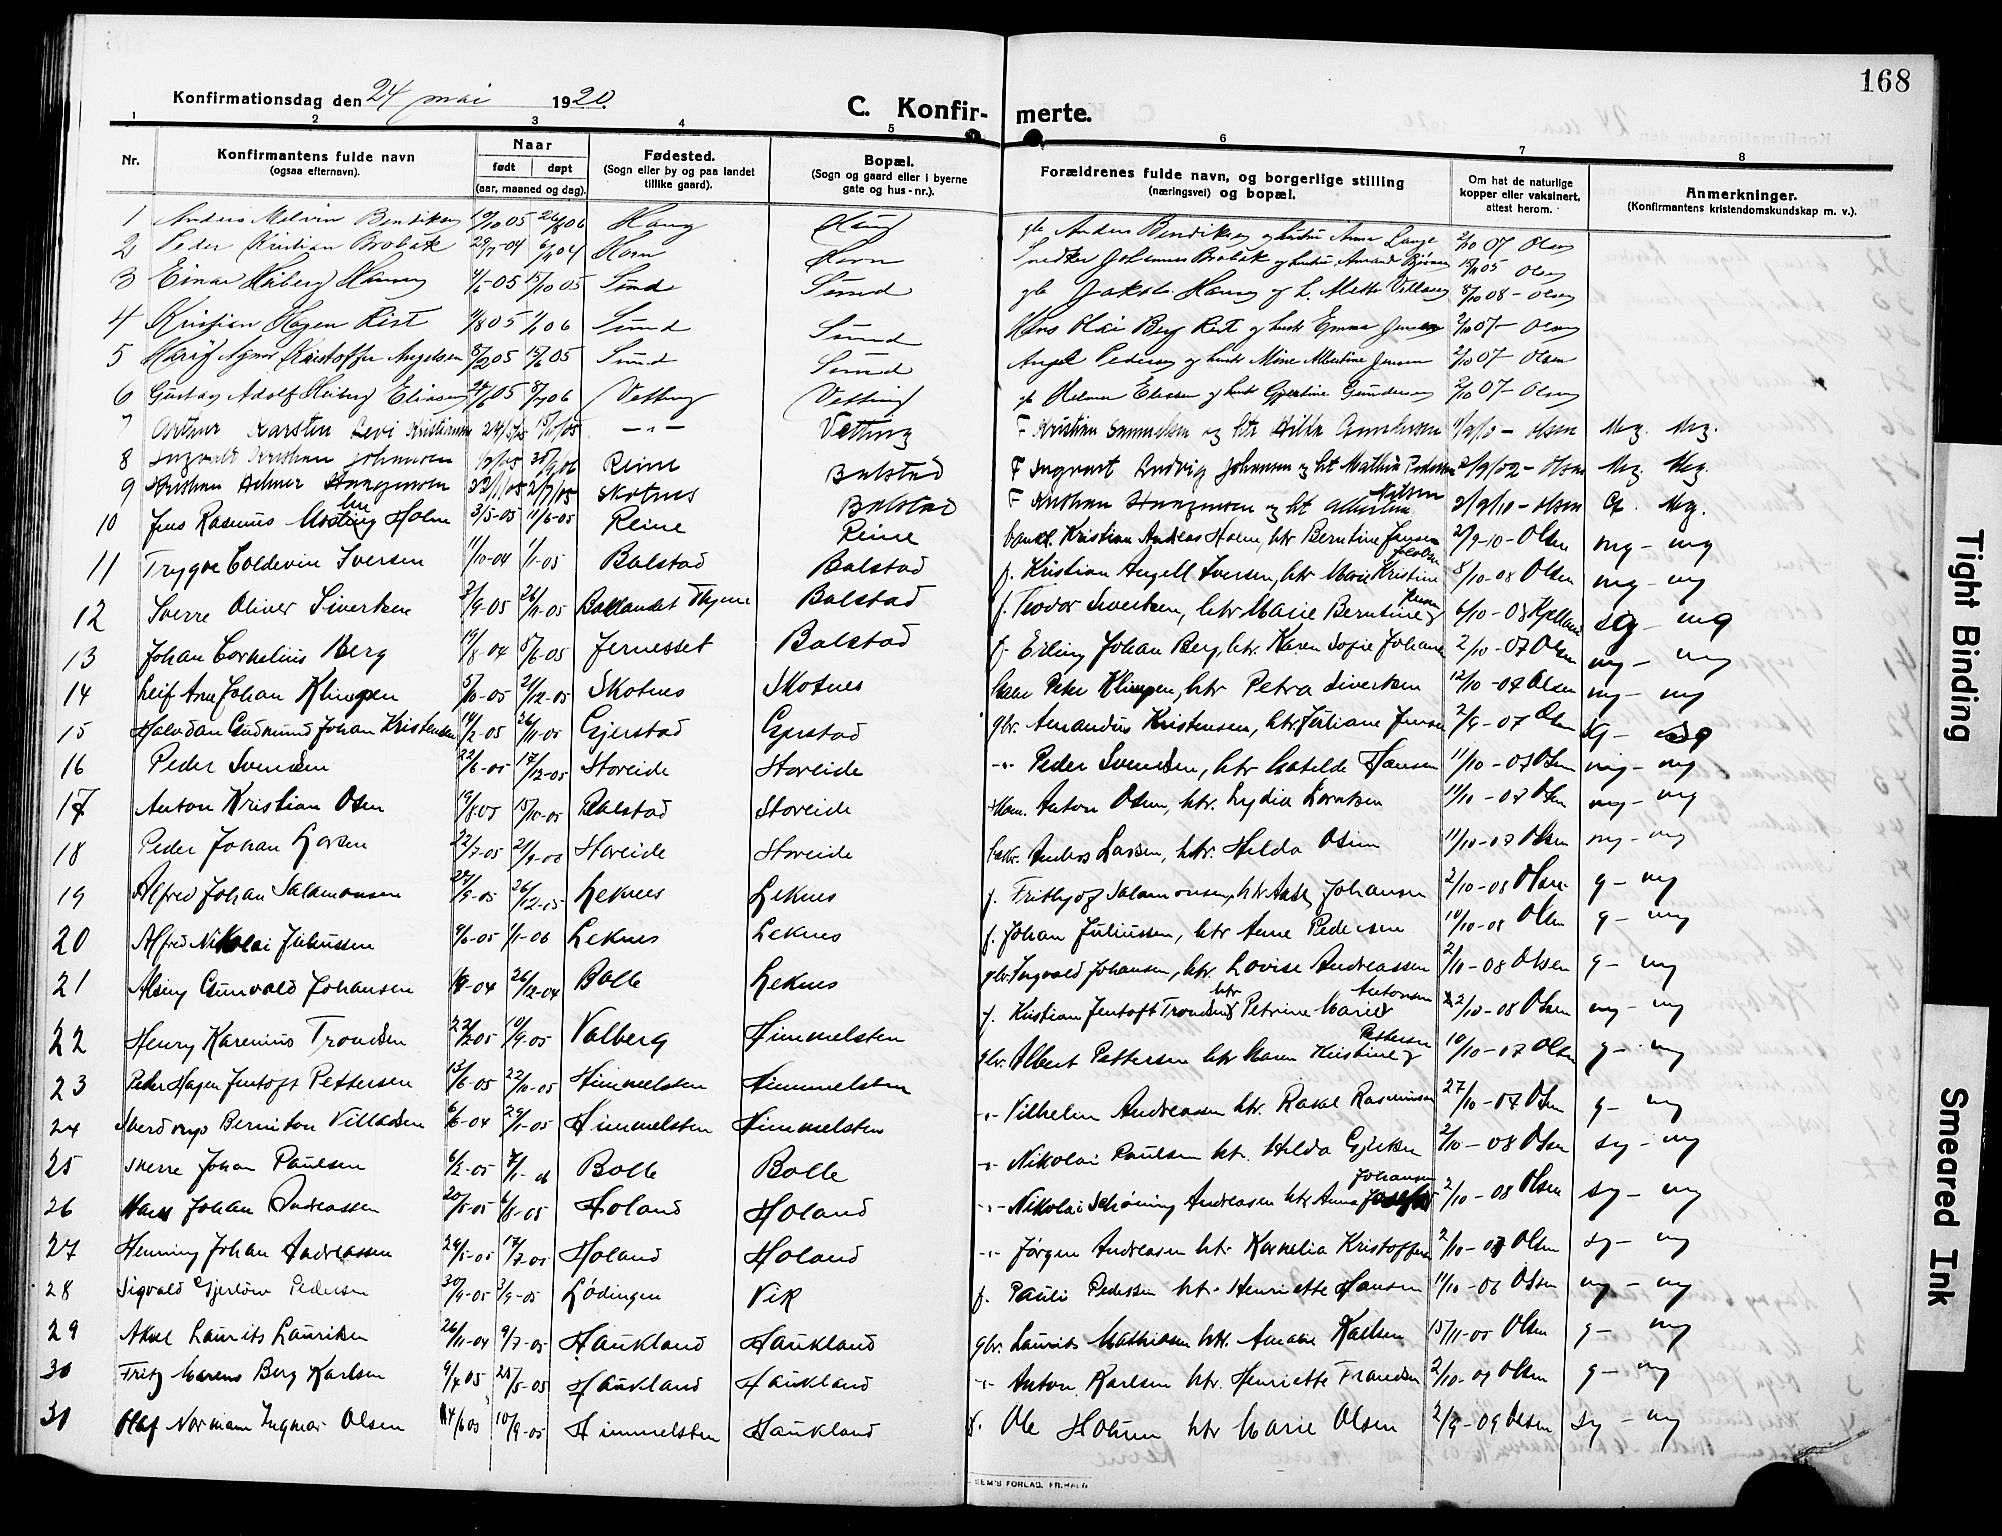 168
Konfirmationsdag den 24 mai 1920.
C. Konfir- merte.
1 2 3 4 5 6 7 8
Nr. Konfirmantens fulde navn (ogsaa efternavn). Naar født døpt (aar, maaned og dag). Fødested. (Sogn eller by og paa landet tillike gaard). Bopæl. (Sogn og gaard eller i byerne gate og hus-nr.). Forældrenes fulde navn, og borgerlige stilling (næringsvei) og bopæl. Om hat de naturlige kopper eller vaksinert, attest herom. Anmerkninger. (Konfirmantens kristendomskundskap m. v.).
1 Anders Melvin Bendiksen 26/8 06 Haug Haug Anders Bendiksen og hustru Anna Lange 2/10 07 Olsen
2 Peder Kristian Brobak Horn Horn Snedker Johannes Brobak og hustru Amanda 05 Olsen
3 Einar Hiberg 15/10 05 Sund Sund Jakob og h. Mette 8/10 08 - Olsen
4 Kristian Hagen Rist Sund Sund Hans Olai Berg Rist og hust Emma Jensen 2/10 07 - Olsen
5 Kristoffer Angelsen 8/2 05 15/6 05 Sund Sund Angel Pedersen og hust Mine Albertine Jensen 2/10 07 - Olsen
6 Gustav Adolf Hiberg Eliasen Vetting Vetting Helmer Eliasen og hust Gjertine Gundersen 2/10 07 - Olsen
7 Arthur Karsten Levi Kristiansen — " — Vetting F Kristian Samuelsen og htr Hilda - Olsen Mg. Mg.
8 Ingvald Kristian Johansen Reine Balstad F Ingvart Ludvig Johansen og ht Mathia Pedersen 2/9/02 - Olsen Mg. Mg.
9 Kristian Hilmer 2/7/05 Skotnes Balstad F Kristian og ht Albertine Nilsen 2/9/10 - Olsen G. Mg.
10 Jens Rasmus Holm 3/5-05 11/6-05 Reine Reine Kristian Andreas Holm, htr Berntine Jensen 2/9-10 - Olsen mg - mg
11 Trygve Coldevin Iversen 11/10-04 1/1-05 Balstad Balstad f. Kristian Angell Iversen, htr Marie Kristine Jacobsen 8/10-08 Olsen mg - mg
12 Sverre Oliver Sivertsen 2/9-05 26/11-05 Balstad f. Teodor Sivertsen, htr Marie Berntine Jensen 6/10-08 Kjelland sg - mg
13 Johan Cornelius Berg 19/8-04 Jernesset Balstad f. Erling Johan Berg, htr. Karen Sofie Johans 2/10-07 Olsen mg - mg
14 Leif Arne Johan Klingen 21/12-05 Skotnes Skotnes Peter Klingen, htr Petra Sivertsen 12/10-07 Olsen mg - mg
15 Halvdan Gudmund Johan Kristensen 14/2-05 26/11-05 Gjerstad Gjerstad gbr. Amandus Kristensen, htr Juliane Jensen 2/9-07 Olsen sg - sg
16 Peder Svendsen 22/6-05 17/12-05 Storeide Storeide -"- Peder Svendsen, htr Matilde Hansen 11/10-07 Olsen mg - mg
17 Anton Kristian Olsen 19/8-05 15/10-05 Balstad Storeide Anton Olsen, htr. Lydia Lorntsen 11/10-07 Olsen mg - mg
18 Peder Johan Larsen 22/7-05 Storeide Storeide Anders Larsen, htr. Hilda Olsen 11/10-07 Olsen mg - mg
19 Alfred Johan Salamonsen 26/12-05 Leknes Leknes f. Frithjof Salamonsen, htr Johansen 2/10-08 Olsen g - mg
20 Alfred Nikolai Juliussen 9/6-05 1/1-06 Leknes Leknes f. Johan Juliussen, htr Anne Pedersen 10/10-08 Olsen g - mg
21 Alsing Gunvald Johansen 26/12-04 Bolle Leknes gbr. Ingvald Johansen, htr. Lovise Andreassen 2/10-08 Olsen g - mg
22 Henry Karenius Trondsen 10/9-05 Valberg Himmelsten f. Kristian Jentoft Trondsen htr Petrine Marie Antonsen 2/10-08 Olsen mg - mg
23 Peder Hagen Jentoft Pettersen 13/6-05 22/10-05 Himmelsten Himmelsten gbr. Albert Pettersen htr Maren Kristine Pettersen 10/10-07 Olsen g - mg
24 Sverdrup Bernton Villadsen 6/6-04 29/1-05 Himmelsten Himmelsten -"- Vilhelm Andreassen htr. Rakel Rasmussen 27/10-07 Olsen g - mg
25 Sverre Johan Paulsen 6/2-05 Bolle Bolle -"- Nikolai Paulsen htr. Hilda Gjertsen 2/10-08 Olsen sg - mg
26 Hans Johan Andreassen 20/5-05 6/8-05 Holand Holand -"- Nikolai Schøning Andreasen htr Anna Johansen 2/10-08 Olsen sg - mg
27 Henning Johan Andreassen 29/5-05 17/7-05 Holand Holand -"- Jørgen Andreasen htr. Kornelia Kristoffersen 2/10-07 Olsen sg - mg
28 Sigvald Gjerløw Pedersen 3/9-05 Lødingen Vik f. Pauli Pedersen htr. Henriette Hansen 11/10-06 Olsen mg - mg
29 Aksel Laurits Lauritsen 26/11-04 9/7-05 Haukland Haukland gbr. Laurits Mathiasen htr. Amalie Karlsen 15/11-05 Olsen g - mg
30 Fritz Marens Berg Karlsen 9/4 05 25/5-05 Haukland Haukland -"- Anton Karlsen htr. Henriette Trondsen 2/10-07 Olsen g - mg
31 Olaf Norman Ingmar Olsen 14/6 05 10/9-05 Himmelsten Haukland f. Ole Holum htr Marie Olsen 2/9-09 Olsen sg - mg
SEM'S FORLAG, FR.HALD
Tight Binding
Smeared Ink